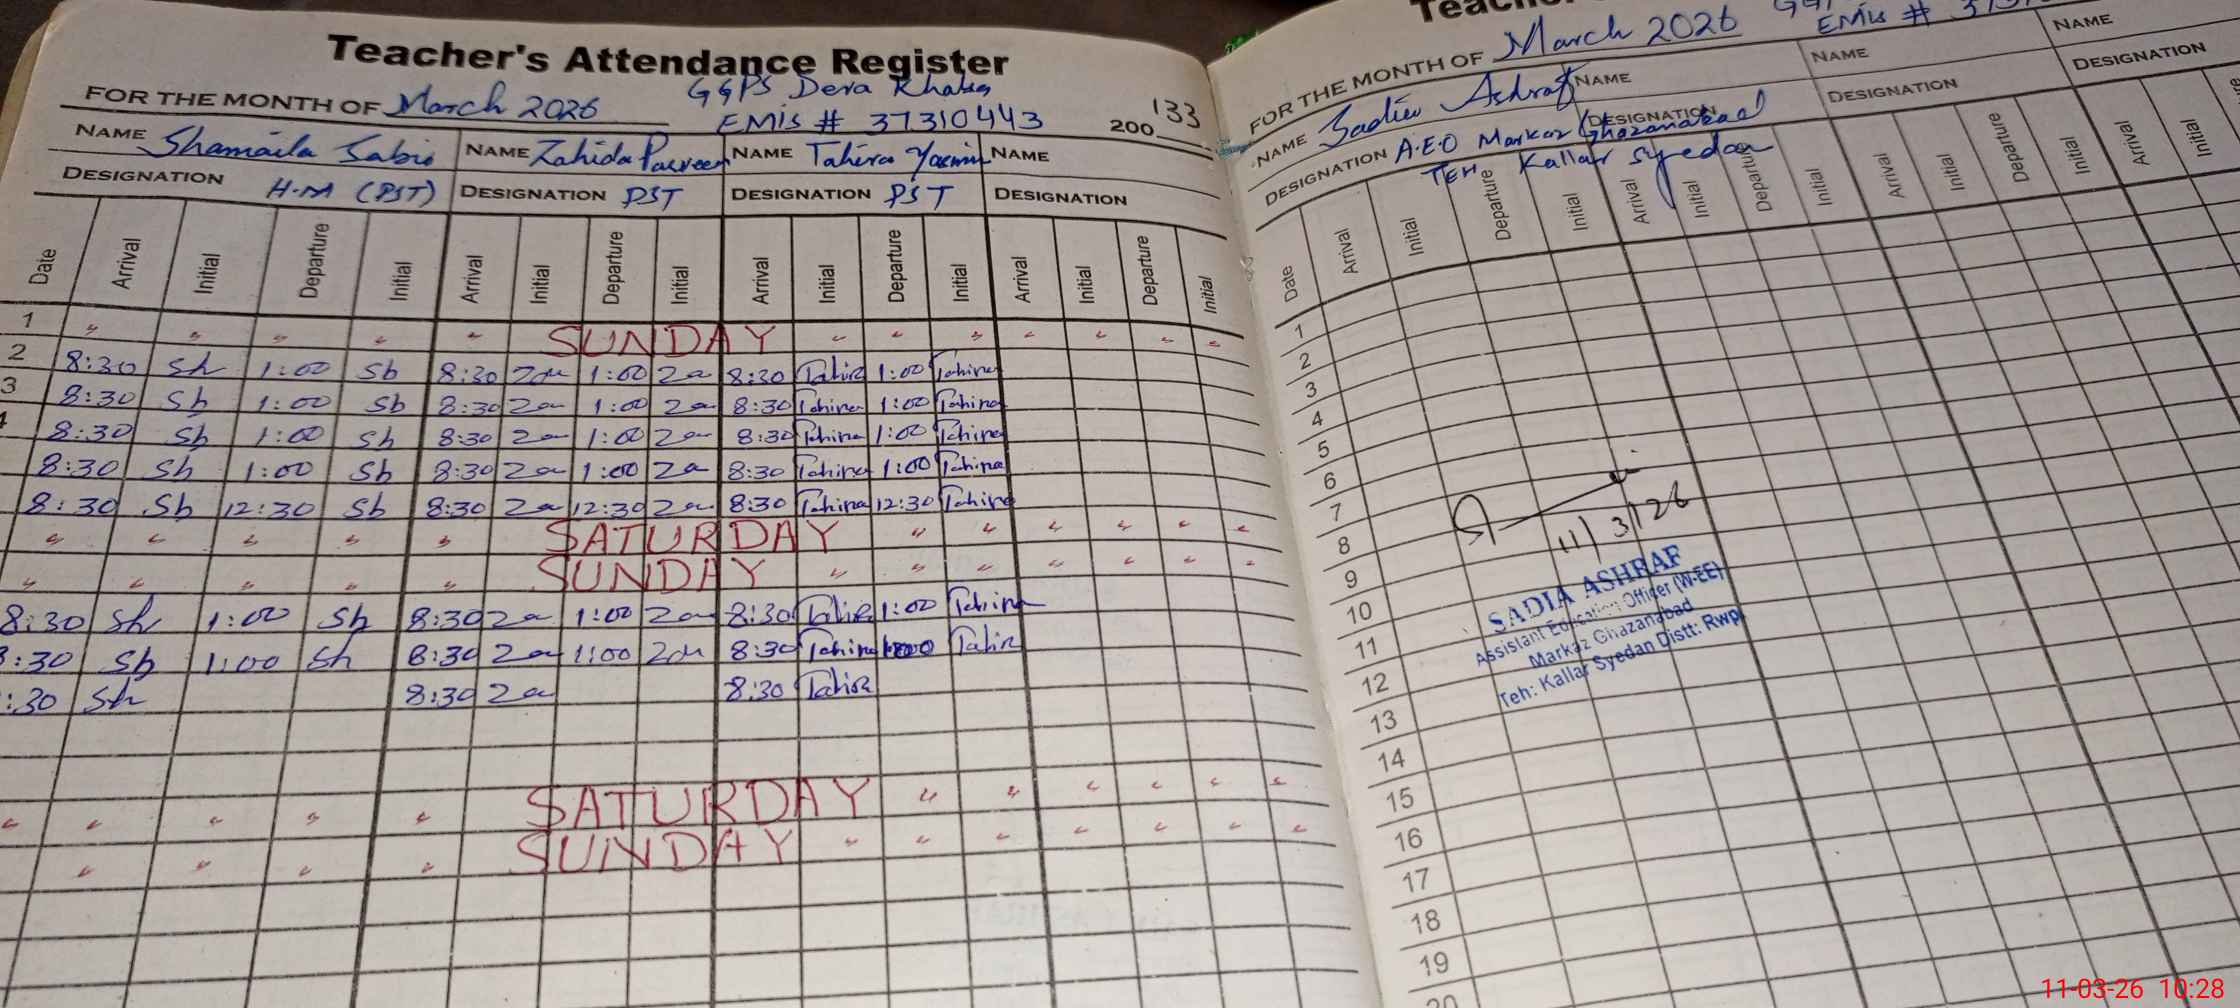 Teacher's Attendance Register
FOR THE MONTH OF March 2026 GGPS Dera Khalsa
EMIS # 37310443 200 133
NAME Shamaila Sabir NAME Zahida Parveen NAME Tahira Yasmin NAME
DESIGNATION H.M (PST) DESIGNATION PST DESIGNATION PST DESIGNATION
Date Arrival Initial Departure Initial Arrival Initial Departure Initial Arrival Initial Departure Initial Arrival Initial Departure Initial
1 SUNDAY
2 8:30 Sh 1:00 Sb 8:30 Za 1:00 Za 8:30 Tahira 1:00 Tahira
3 8:30 Sb 1:00 Sb 8:30 Za 1:00 Za 8:30 Tahira 1:00 Tahira
4 8:30 Sb 1:00 Sb 8:30 Za 1:00 Za 8:30 Tahira 1:00 Tahira
8:30 Sh 1:00 Sb 8:30 Za 1:00 Za 8:30 Tahira 1:00 Tahira
8:30 Sb 12:30 Sb 8:30 Za 12:30 Za 8:30 Tahira 12:30 Tahira
SATURDAY
SUNDAY
8:30 Sh 1:00 Sh 8:30 Za 1:00 Za 8:30 Tahira 1:00 Tahira
8:30 Sb 1:00 Sh 8:30 Za 1:00 Za 8:30 Tahira Tahira
:30 Sh 8:30 Za 8:30 Tahira
SATURDAY
SUNDAY
FOR THE MONTH OF March 2026
EMIS #
NAME Sadia Ashraf NAME NAME NAME
DESIGNATION A.E.O Markaz Ghazanabad DESIGNATION DESIGNATION DESIGNATION
TEH Kallar Syedan
Date Arrival Initial Departure Initial Arrival Initial Departure Initial Arrival Initial Departure Initial Arrival Initial
1
2
3
4
5
6
7
8
9
10
11
12
13
14
15
16
17
18
19
20
11/3/26
SADIA ASHRAF
Assistant Education Officer (W-EE)
Markaz Ghazanabad
Teh: Kallar Syedan Distt: Rwp
11-03-26 10:28